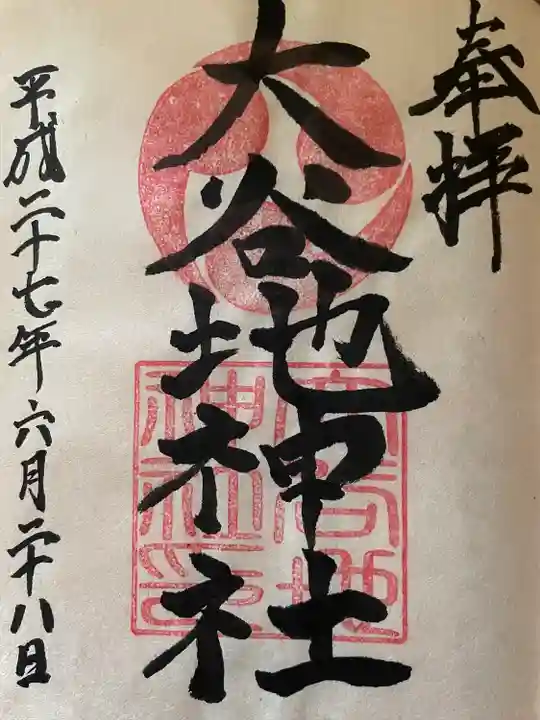 奉拝
大谷地神社
大谷地
神社印
平成二十七年六月二十八日